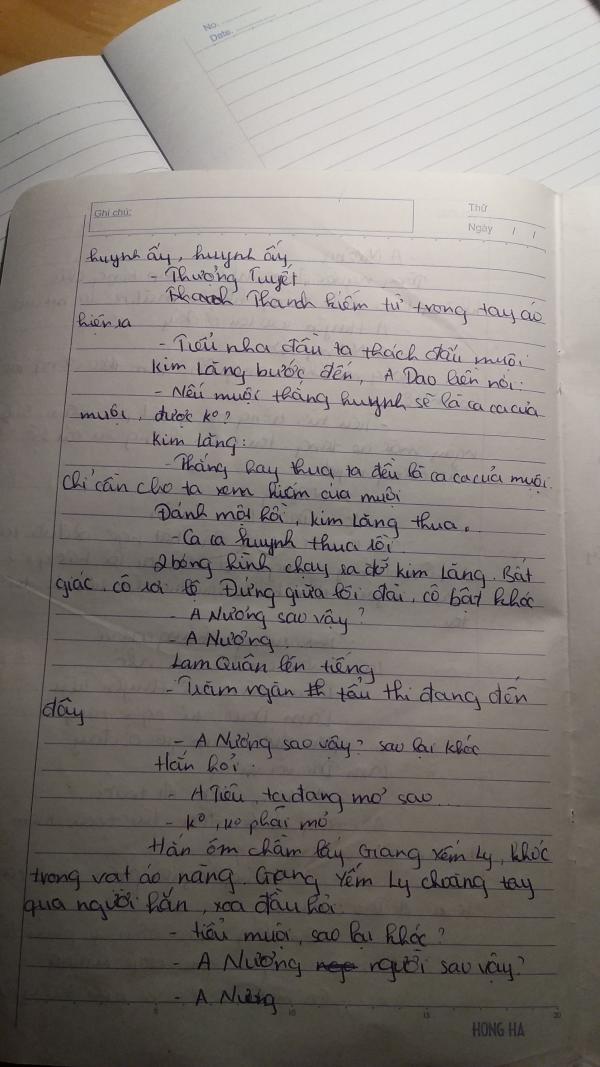 No.
Date.
Ghi chú:
Thứ
Ngày / /
huynh ấy, huynh ấy,
- Thưởng Tuyết
Thanh kiếm từ trong tay áo
hiện ra
- Tiểu nha đầu ta thách đấu muội
Kim Lăng bước đến, A Dao liền nói:
- Nếu muội thắng huynh sẽ là ca ca của
muội, được k°?
Kim Lăng:
- Thắng hay thua ta đều là ca ca của muội.
chỉ cần cho ta xem kiếm của muội
Đánh một hồi, Kim Lăng thua.
- Ca ca huynh thua rồi
2 bóng hình chạy ra đỡ Kim Lăng. Bất
giác, cô rơi lệ Đứng giữa lôi đài, cô bật khóc
- A Nương sao vậy?
- A Nương
Lam Quân lên tiếng
- Trăm ngàn tẩu thi đang đến
đây
- A Nương sao vậy? sao lại khóc
Hắn hỏi:
- A Tiểu, ta đang mơ sao...
- k°, k° phải mơ
Hắn ôm chầm lấy Giang Yếm Ly, khóc
trong vạt áo nàng. Giang Yếm Ly choàng tay
qua người hắn, xoa đầu hỏi
- tiểu muội, sao lại khóc?
- A Nương người sao vậy?
- A Nương
5 10 15 20
HONG HA